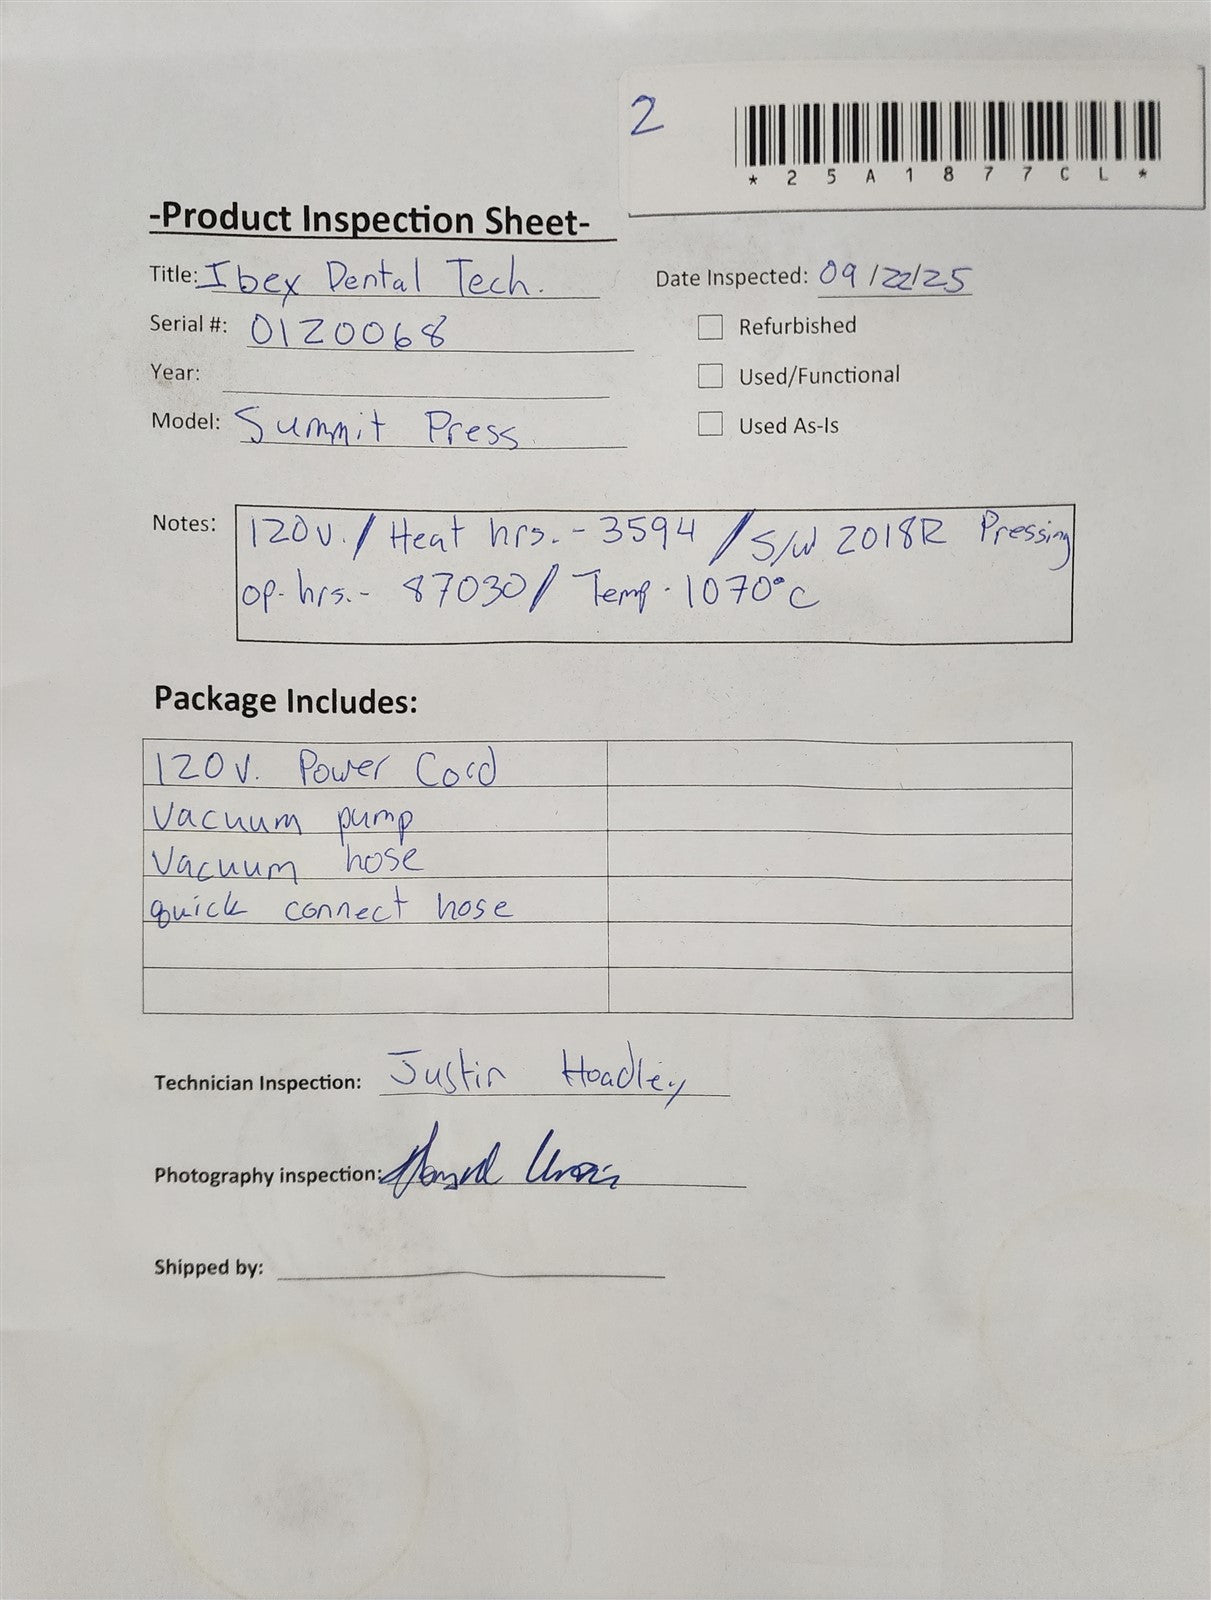 2
* 2 5 A 1 8 7 7 C L *
-Product Inspection Sheet-
Title: Ibex Dental Tech.
Date Inspected: 09/22/25
Serial #: 0120068
Refurbished
Year:
Used/Functional
Model: Summit Press
Used As-Is
Notes: 120v. / Heat hrs. - 3594 / S/W 2018R Pressing
op. hrs. - 87030 / Temp. 1070°C
Package Includes:
120v. Power Cord
Vacuum pump
Vacuum hose
quick connect hose
Technician Inspection: Justin Hoadley
Photography inspection:
Shipped by: